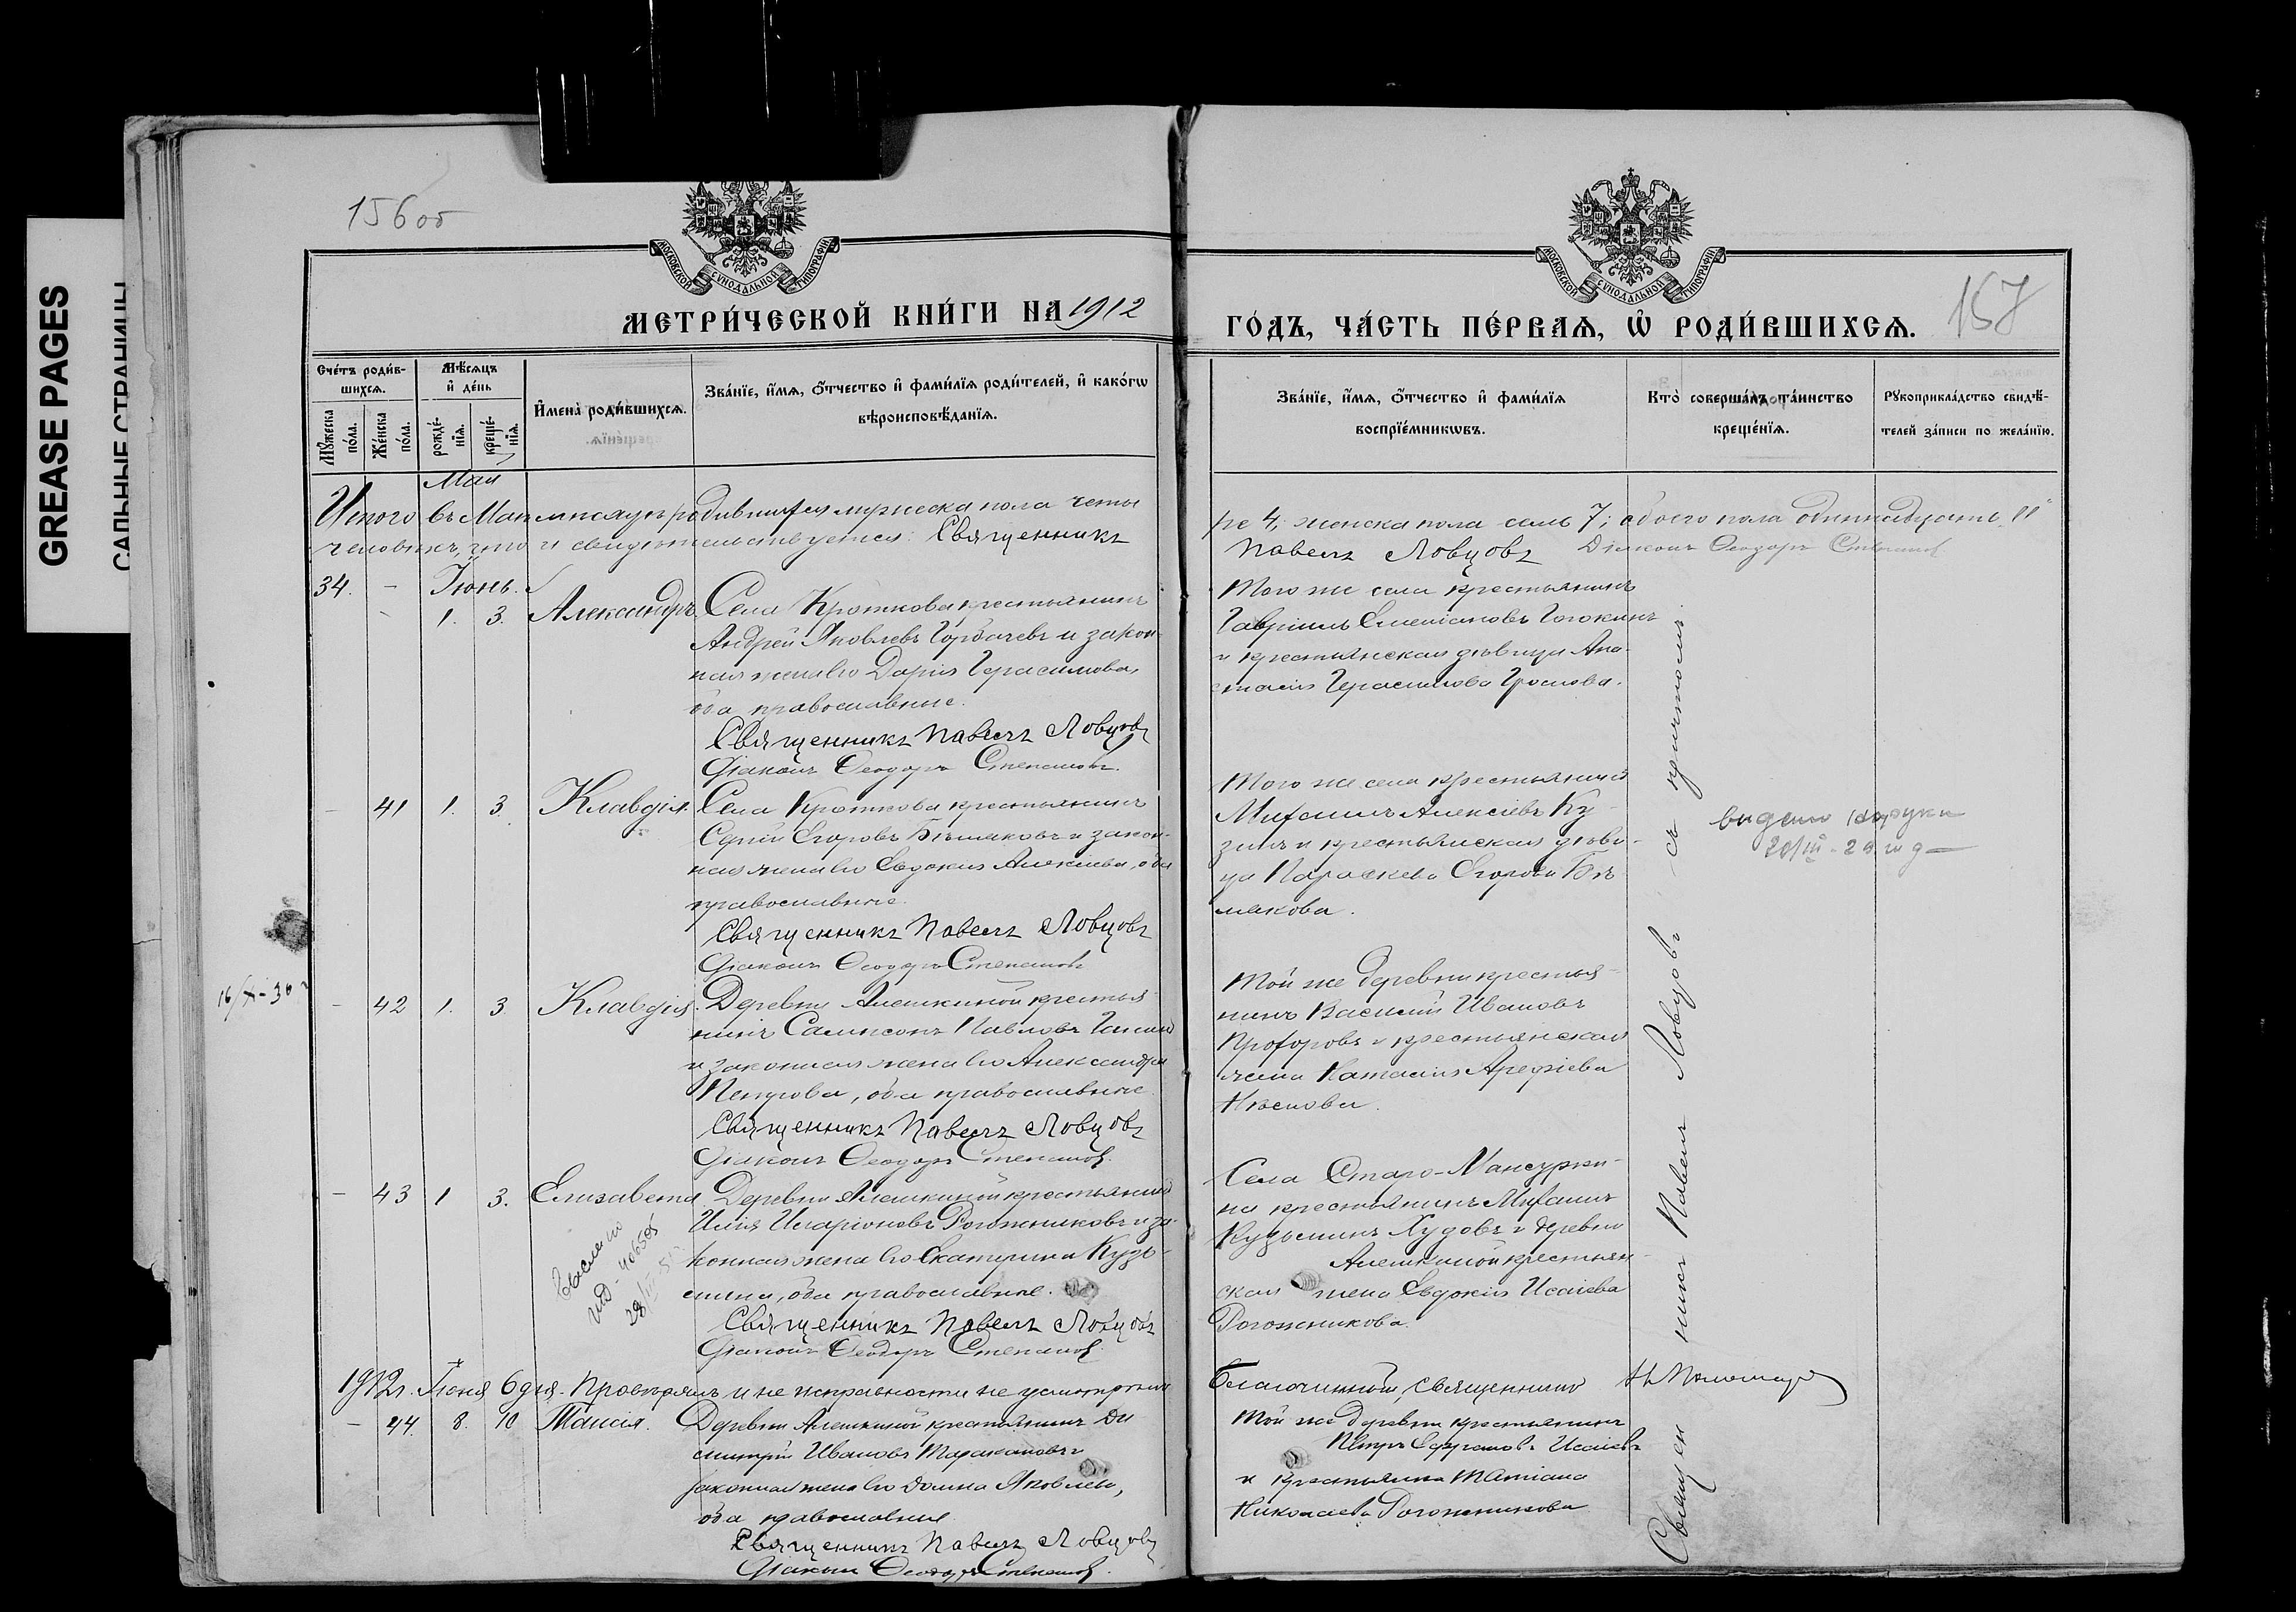 GREASE PAGES
САЛЬНЫЕ СТРАНИЦЫ
156 об
157
МОСКОВСКОЙ СѴНОДАЛЬНОЙ ТИПОГРАФІИ
МОСКОВСКОЙ СѴНОДАЛЬНОЙ ТИПОГРАФІИ
МЕТРИ́ЧЕСКОЙ КНИ́ГИ НА 1912
ГО́ДЪ, ЧА́СТЬ ПЕ́РВАѦ, Ѡ РОДИ́ВШИХСѦ.
Сче́тъ роди́в-
шихсѧ.
Мꙋжеска по́ла.
Же́нска по́ла.
Мѣ́сѧцъ
и҆ де́нь
рожде́-
нїѧ.
креще́-
нїѧ.
И҆мена̀ роди́вшихсѧ.
Зва́нїе, и҆́мѧ, ѻ҆́тчество и҆ фами́лїѧ роди́телей, и҆ како́гѡ
вѣроисповѣ́данїѧ.
Зва́нїе, и҆́мѧ, ѻ҆́тчество и҆ фами́лїѧ
воспрїе́мникѡвъ.
Кто̀ соверша́лъ та́инство
креще́нїѧ.
Рꙋкоприкла́дство свидѣ́-
телей за́писи по жела́нїю.
Май
Итого въ Маѣ мѣсяцѣ родившихся мужеска пола четы
ре 4; женска пола семь 7; обоего пола одиннадцать 11
человѣкъ, что и свидѣтельствуется: Священникъ
Павелъ Ловцовъ Діаконъ Ѳеодоръ Степановъ
34. - Іюнь.
1. 3. Александръ. Села Кроткова крестьянинъ
Андрей Яковлевъ Горбачевъ и закон-
ная жена его Дарія Герасимова,
оба православные.
Священникъ Павелъ Ловцовъ
Діаконъ Ѳеодоръ Степановъ.
Того же села крестьянинъ
Гавріилъ
и крестьянская дѣвица Ана-
стасія Герасимова
- 41 1. 3. Клавдія. Села Кроткова крестьянинъ
Сергій Егоровъ Бѣляковъ и закон-
ная жена его Евдокія Алексіева, оба
православные.
Священникъ Павелъ Ловцовъ
Діаконъ Ѳеодоръ Степановъ
Того же села крестьянинъ
Михаилъ Алексіевъ Ку-
зинъ и крестьянская дѣви-
ца Параскева Егорова Бѣ
лякова.
16/X-30 г
- 42 1. 3. Клавдія. Деревни Алешкиной крестья-
нинъ Сампсонъ Павловъ
и законная жена его Александра
Петрова, оба православные
Священникъ Павелъ Ловцовъ
Діаконъ Ѳеодоръ Степановъ.
Той же деревни крестья-
нинъ Василій Ивановъ
Прохоровъ и крестьянская
жена Наталія Арефіева
- 43 1 3. Елизавета Деревни Алешкиной крестьянинъ
Илія Иларіоновъ Рогожниковъ и за-
конная жена его Екатерина Кузь-
мина, оба православные.
Священникъ Павелъ Ловцовъ
Діаконъ Ѳеодоръ Степановъ.
Села Старо-Мансурки-
на крестьянинъ Михаилъ
Кузьминъ Худовъ и деревни
Алешкиной крестьян-
ская жена Евдокія Исаіева
Рогожникова.
1912 г. Іюня 6 дня. Провѣрялъ и не исправности не усмотрѣлъ
Благочинный, священникъ
- 44. 8. 10 Таисія. Деревни Алешкиной крестьянинъ Ди
митрій Ивановъ Таракановъ и
законная жена его Домна Яковлева,
оба православные
Священникъ Павелъ Ловцовъ
Діаконъ Ѳеодоръ Степановъ.
Той же деревни крестьянинъ
Петръ Исаіевъ
и крестьянка Татіана
Николаева Рогожникова
Священникъ Павелъ Ловцовъ съ причтомъ.